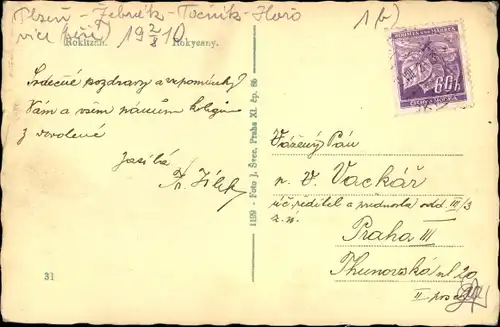 Plzeň - Žebrák - Točník - Hořo
vice (září) 19 2/8 10
Rokitzan. Rokycany.
1b)
Srdečné pozdravy a vzpomínky
Vám a všem pánům kolegům
z dovolené
zasílá
Fr. Jílek
BÖHMEN UND MÄHREN
60h
ČECHY A MORAVA
1199 - Foto J. Švec, Praha XI, čp. 86
Vážený Pán
n. V. Vackář
úč. ředitel a přednosta odd. III/3
z. ú.
Praha III
Thunovská ul 20
II. posch
31